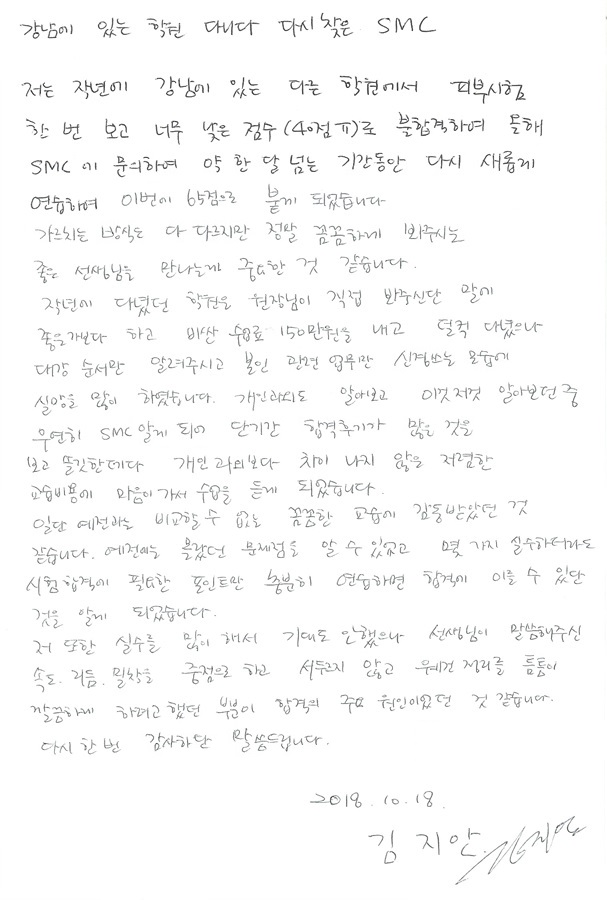 강남에 있는 학원 다니다 다시 찾은 SMC
저는 작년에 강남에 있는 다른 학원에서 피부시험
한 번 보고 너무 낮은 점수(40점 ㅠ)로 불합격하여 올해
SMC에 문의하여 약 한 달 넘는 기간동안 다시 새롭게
연습하여 이번에 65점으로 붙게 되었습니다
가르치는 방식은 다 다르지만 정말 꼼꼼하게 봐주시는
좋은 선생님을 만나는게 중요한 것 같습니다.
작년에 다녔던 학원은 원장님이 직접 봐주신단 말에
좋은가보다 하고 비싼 수업료 150만원을 내고 덜컥 다녔으나
대강 순서만 알려주시고 본인 관련 업무만 신경쓰는 모습에
실망을 많이 하였습니다. 개인과외도 알아보고 이것저것 알아보던 중
우연히 SMC 알게 되어 단기간 합격후기가 많은 것을
보고 뜰깃한데다 개인과외보다 차이 나지 않을 저렴한
교습비용에 마음이 가서 수업을 듣게 되었습니다.
일단 예전과는 비교할 수 없는 꼼꼼한 교습에 감동받았던 것
같습니다. 예전에는 몰랐던 문제점을 알 수 있었고 몇 가지 실수하더라도
시험합격에 필요한 포인트만 충분히 연습하면 합격에 이를 수 있단
것을 알게 되었습니다.
저 또한 실수를 많이 해서 기대도 안했으나 선생님이 말씀해주신
속도, 리듬, 밀착을 중점으로 하고 서두르지 않고 웨건 정리를 틈틈이
깔끔하게 하려고 했던 부분이 합격의 주요 원인이었던 것 같습니다.
다시 한 번 감사하단 말씀드립니다.
2018.10.18.
김지안